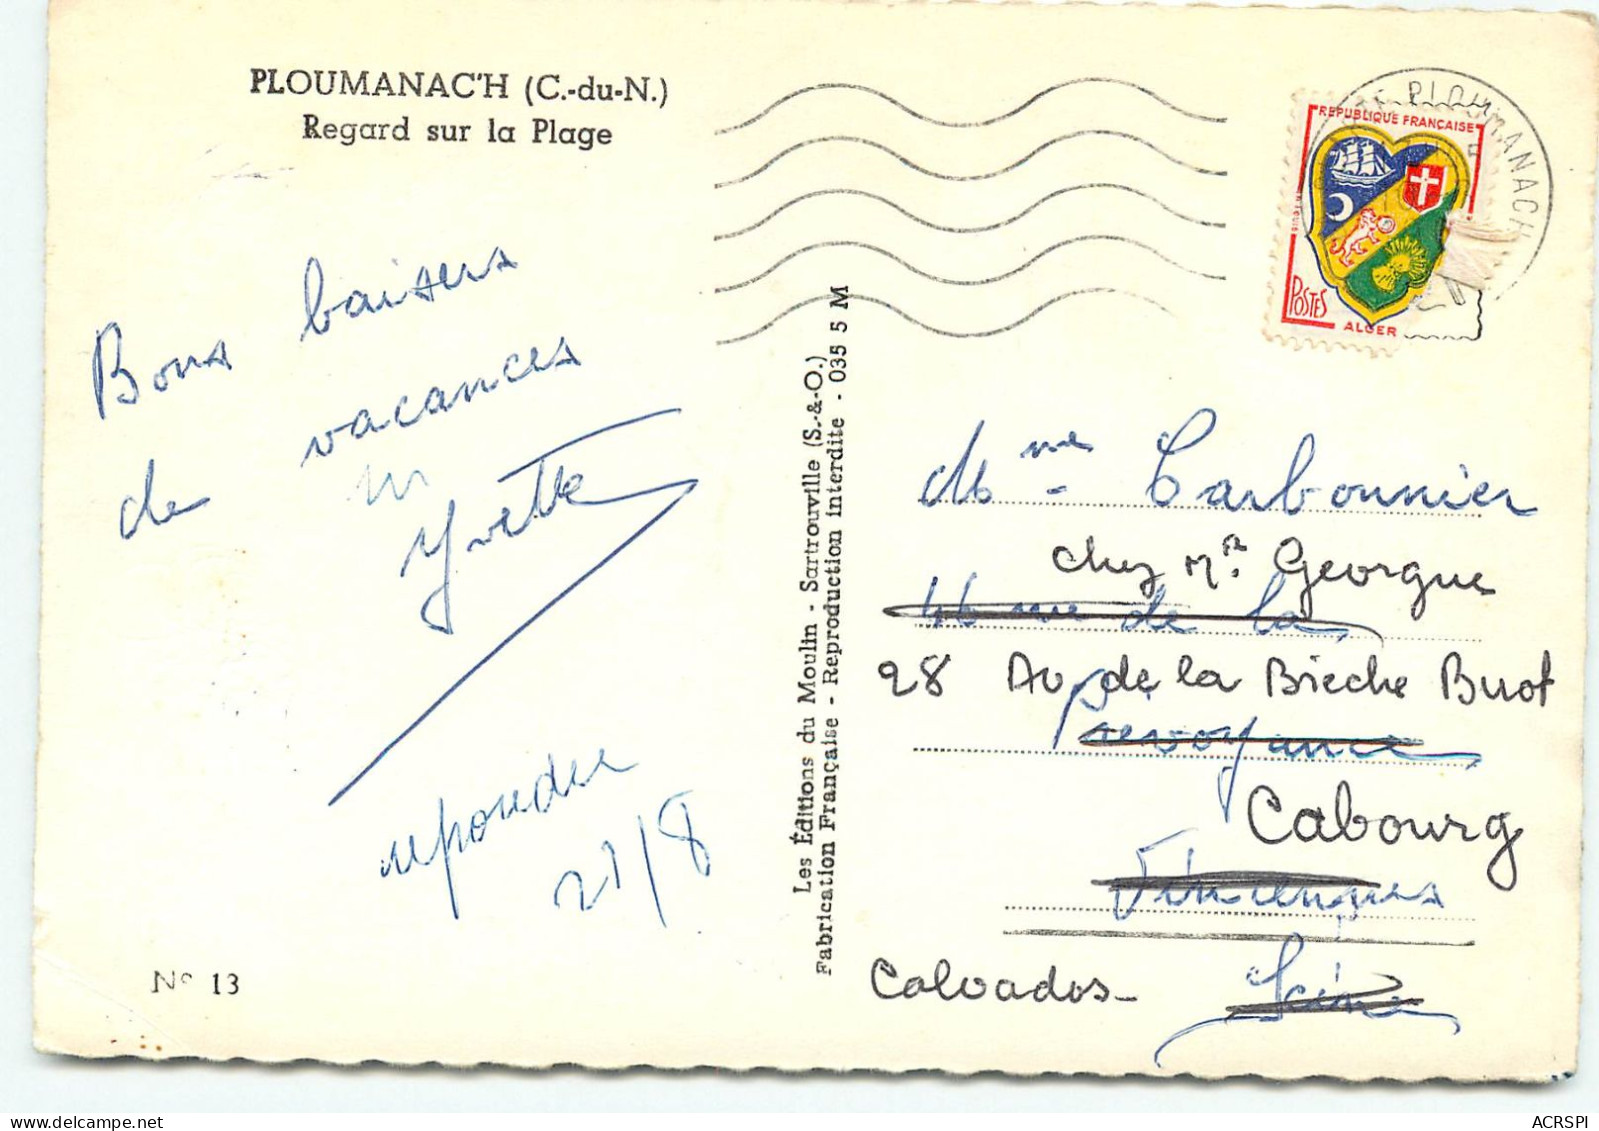 PLOUMANAC'H (C.-du-N.)
Regard sur la Plage
Bons baisers
de vacances
Yvette
repondre
21/8
Nº 13
Les Éditions du Moulin - Sartrouville (S.-&-O.)
Fabrication Française - Reproduction interdite - 035 5 M
PLOUMANACH
REPUBLIQUE FRANÇAISE
POSTES
ALGER
Mme Carbonnier
chez Mr. Georgue
46 rue de la
28 Av. de la Brèche Buot
Prévoyance
Cabourg
Vincennes
Calvados -
Seine
ACRSPI